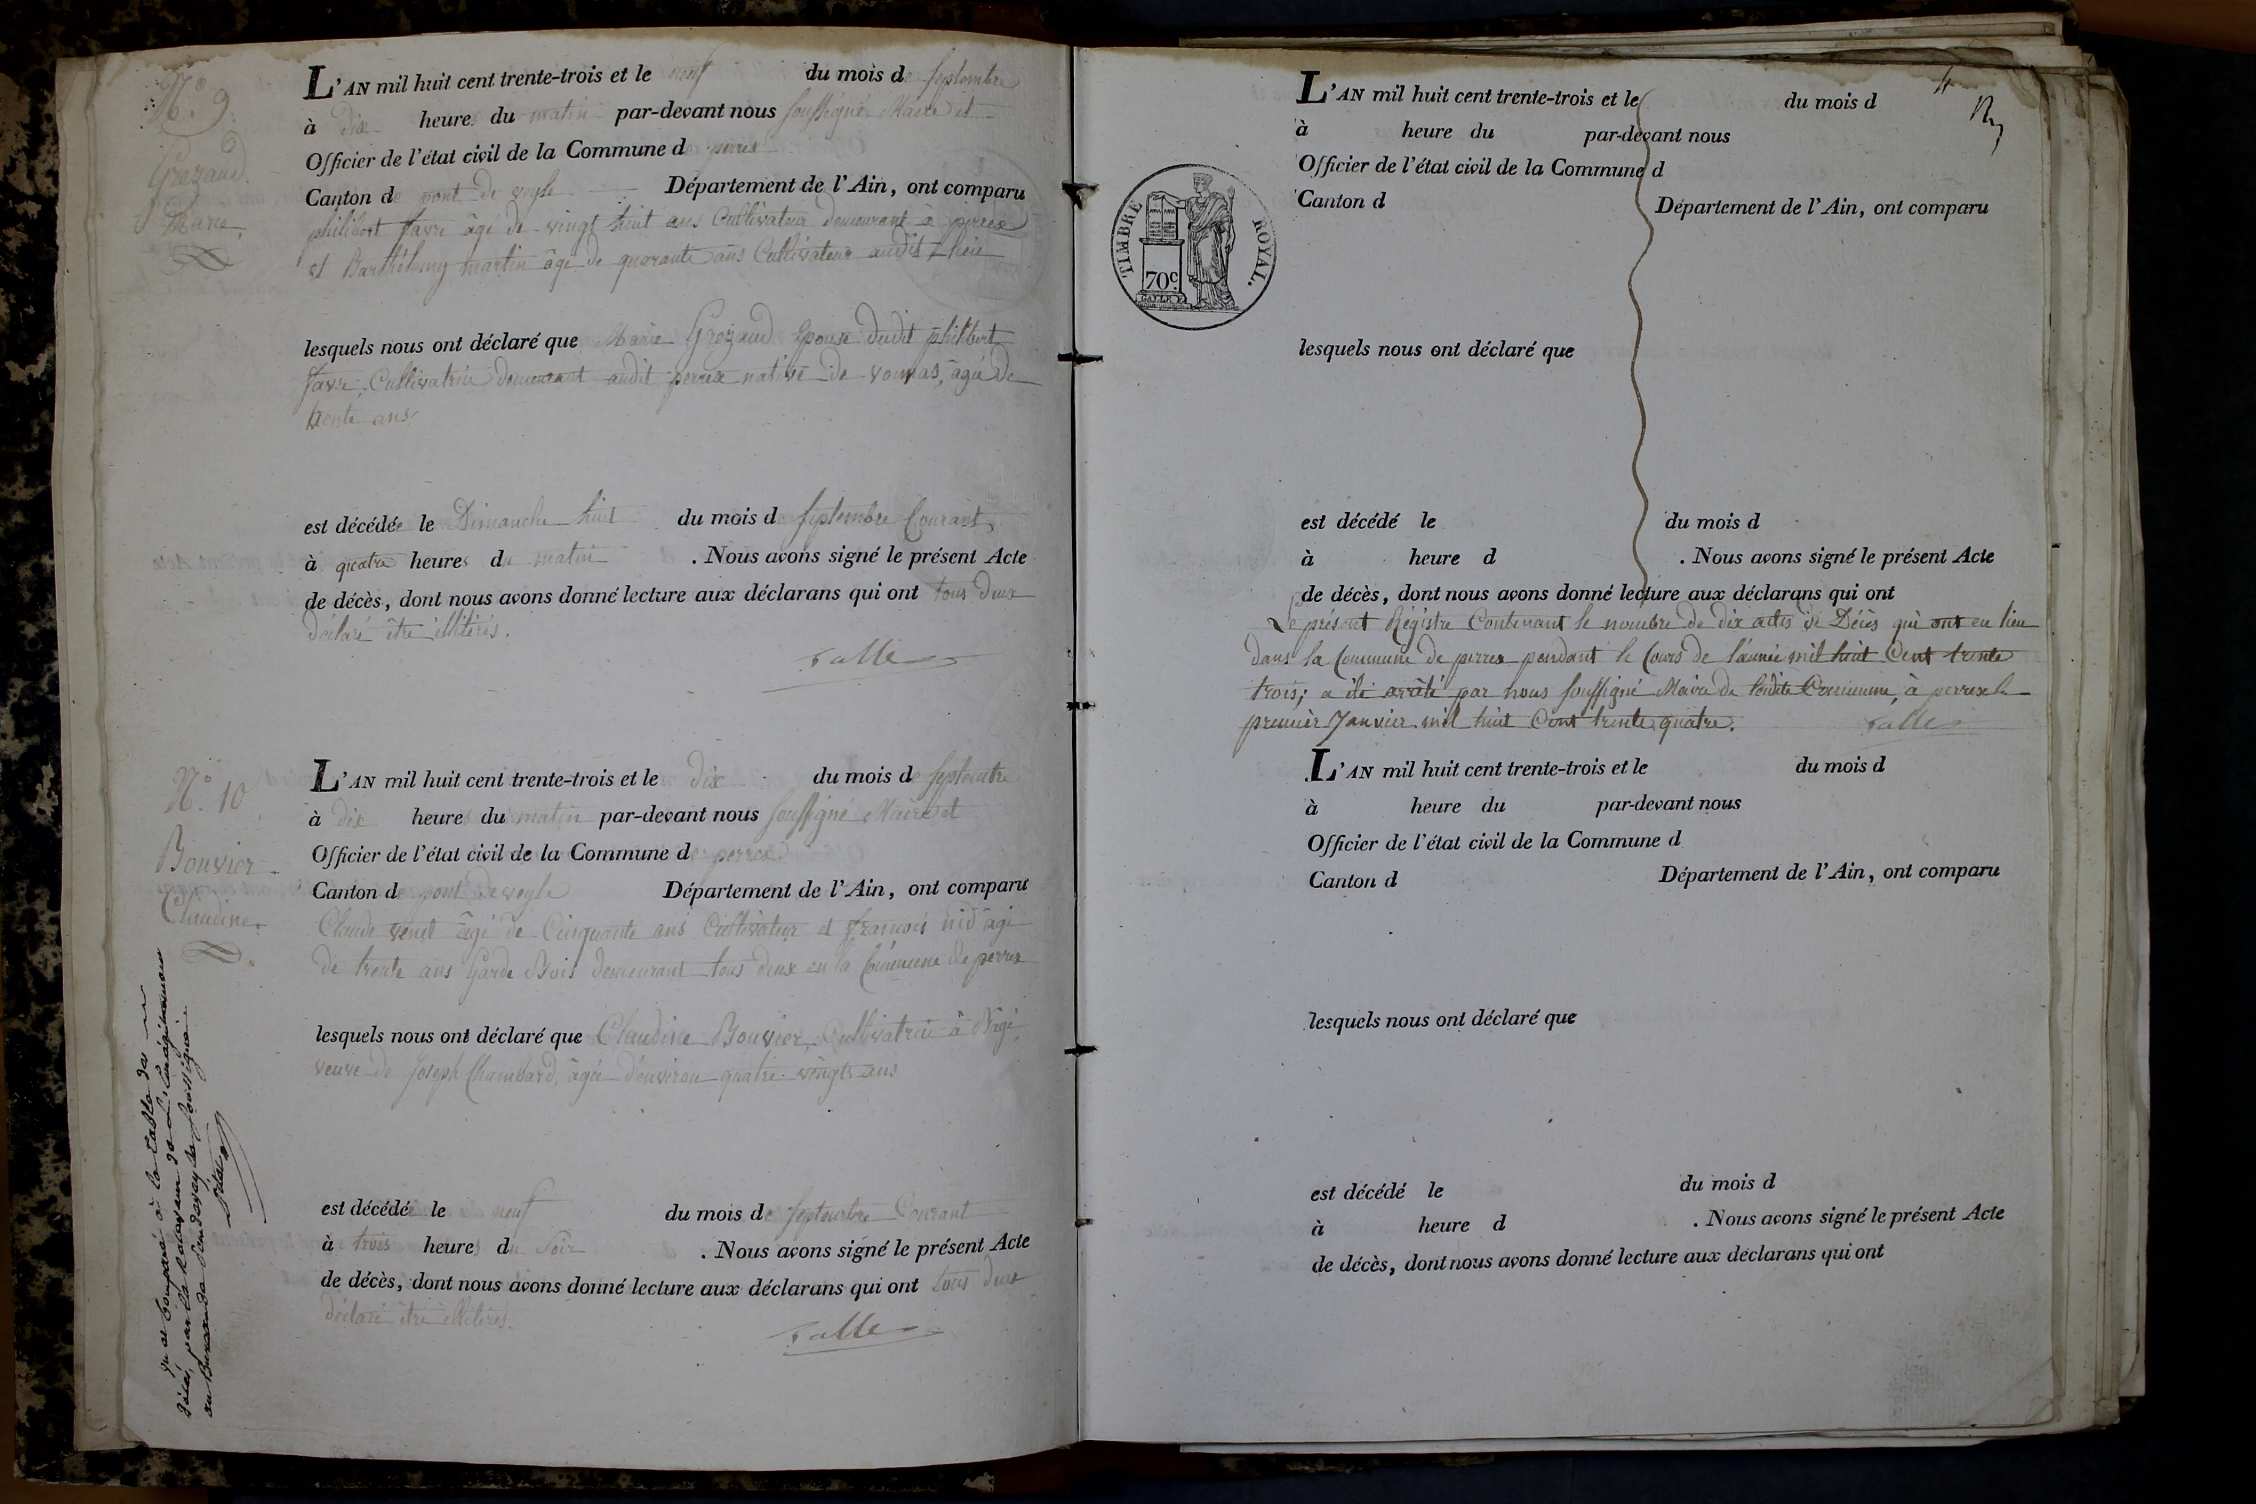 N.° 9
Grezaud
Marie
L'AN mil huit cent trente-trois et le neuf du mois de septembre
à dix heures du matin par-devant nous soussigné Maire et
Officier de l'état civil de la Commune de perrex
Canton de pont de veyle Département de l'Ain, ont comparu
philibert favre âgé de vingt huit ans Cultivateur demeurant à perrex
et Barthélemy martin âgé de quarante ans Cultivateur audit lieu
lesquels nous ont déclaré que Marie Grezaud Epouse dudit philibert
favre, Cultivatrice demeurant audit perrex native de vonnas, âgée de
trente ans
est décédée le Dimanche huit du mois de septembre Courant
à quatre heures du matin . Nous avons signé le présent Acte
de décès, dont nous avons donné lecture aux déclarans qui ont tous deux
déclaré être illitérés.
falle
N.° 10
Bouvier
Claudine.
L'AN mil huit cent trente-trois et le dix du mois de septembre
à dix heures du matin par-devant nous soussigné Maire et
Officier de l'état civil de la Commune de perrex
Canton de pont de veyle Département de l'Ain, ont comparu
Claude venet âgé de Cinquante ans Cultivateur et françois nid âgé
de trente ans Garde Bois demeurant tous deux en la Commune de perrex
lesquels nous ont déclaré que Claudine Bouvier, Cultivatrice à
veuve de Joseph Chambard, âgée d'environ quatre vingts ans
est décédée le neuf du mois de septembre Courant
à trois heures du soir . Nous avons signé le présent Acte
de décès, dont nous avons donné lecture aux déclarans qui ont tous deux
déclaré être illitérés.
falle
Vu et Comparé à la table des
décès, par le Receveur de l'Enregistrement
au Bureau de Pontdeveyle, soussigné
4
TIMBRE ROYAL.
70c.
L'AN mil huit cent trente-trois et le du mois d
à heure du par-devant nous
Officier de l'état civil de la Commune d
Canton d Département de l'Ain, ont comparu
lesquels nous ont déclaré que
est décédé le du mois d
à heure d . Nous avons signé le présent Acte
de décès, dont nous avons donné lecture aux déclarans qui ont
Le présent Régistre Contenant le nombre de dix actes de Décès qui ont eu lieu
dans la Commune de perrex pendant le Cours de l'année mil huit Cent trente
trois; a été arrêté par nous soussigné Maire de ladite Commune, à perrex le
premier Janvier mil huit Cent trente quatre.
falle
L'AN mil huit cent trente-trois et le du mois d
à heure du par-devant nous
Officier de l'état civil de la Commune d
Canton d Département de l'Ain, ont comparu
lesquels nous ont déclaré que
est décédé le du mois d
à heure d . Nous avons signé le présent Acte
de décès, dont nous avons donné lecture aux déclarans qui ont